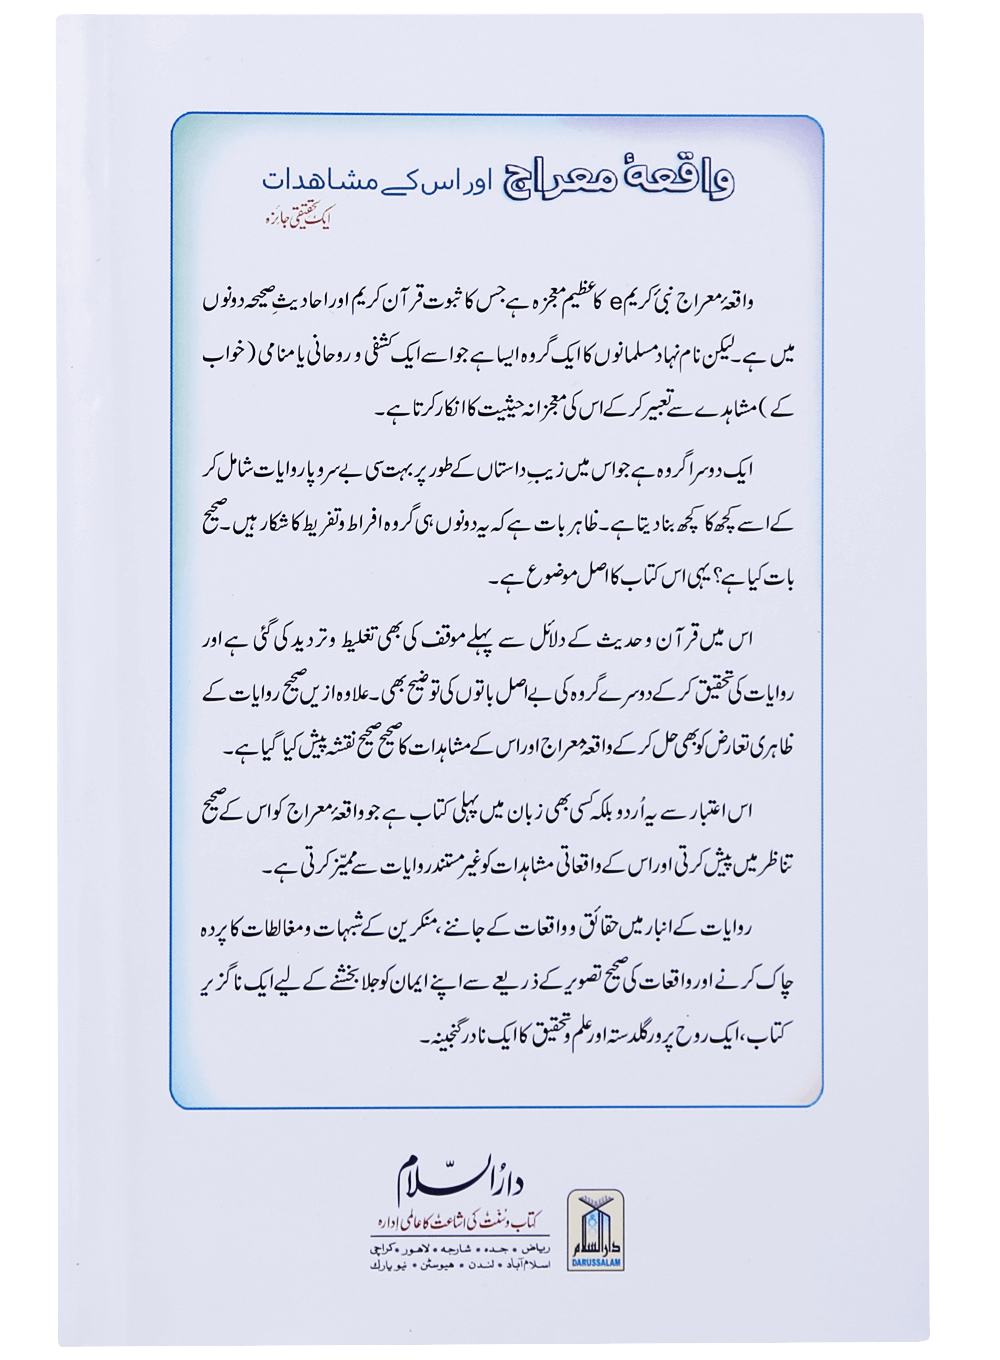 واقعۂ معراج اور اس کے مشاهدات
ایک تحقیقی جائزہ
واقعۂ معراج نبیٔ کریم e کا عظیم معجزہ ہے جس کا ثبوت قرآن کریم اور احادیثِ صحیحہ دونوں
میں ہے۔ لیکن نام نہاد مسلمانوں کا ایک گروہ ایسا ہے جو اسے ایک کشفی و روحانی یا منامی (خواب
کے) مشاہدے سے تعبیر کر کے اس کی معجزانہ حیثیت کا انکار کرتا ہے۔
ایک دوسرا گروہ ہے جو اس میں زیبِ داستاں کے طور پر بہت سی بے سروپا روایات شامل کر
کے اسے کچھ کا کچھ بنا دیتا ہے۔ ظاہر بات ہے کہ یہ دونوں ہی گروہ افراط و تفریط کا شکار ہیں۔ صحیح
بات کیا ہے؟ یہی اس کتاب کا اصل موضوع ہے۔
اس میں قرآن و حدیث کے دلائل سے پہلے موقف کی بھی تغلیط و تردید کی گئی ہے اور
روایات کی تحقیق کر کے دوسرے گروہ کی بے اصل باتوں کی توضیح بھی۔ علاوہ ازیں صحیح روایات کے
ظاہری تعارض کو بھی حل کر کے واقعۂ معراج اور اس کے مشاہدات کا صحیح صحیح نقشہ پیش کیا گیا ہے۔
اس اعتبار سے یہ اُردو بلکہ کسی بھی زبان میں پہلی کتاب ہے جو واقعۂ معراج کو اس کے صحیح
تناظر میں پیش کرتی اور اس کے واقعاتی مشاہدات کو غیر مستند روایات سے ممیّز کرتی ہے۔
روایات کے انبار میں حقائق و واقعات کے جاننے، منکرین کے شبہات و مغالطات کا پردہ
چاک کرنے اور واقعات کی صحیح تصویر کے ذریعے سے اپنے ایمان کو جلا بخشنے کے لیے ایک ناگزیر
کتاب، ایک روح پرور گلدستہ اور علم و تحقیق کا ایک نادر گنجینہ۔
دارُالسّلام
کتاب و سُنّت کی اشاعت کا عالمی ادارہ
ریاض • جدہ • شارجہ • لاهور • کراچی
اسلام آباد • لندن • هیوسٹن • نیو یارک
دارالسلام
DARUSSALAM